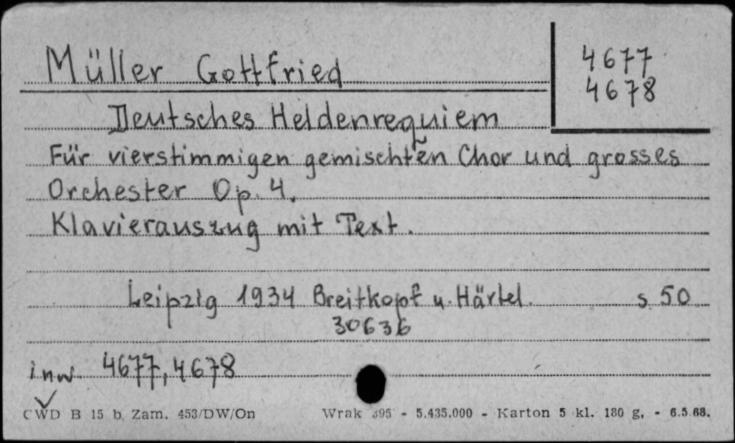 Müller Gottfried
4677
4678
Deutsches Heldenrequiem
Für vierstimmigen gemischten Chor und grosses
Orchester Op. 4.
Klavierauszug mit Text.
Leipzig 1934 Breitkopf u. Härtel. s. 50
30636
inw 4677, 4678
CWD B 15 b. Zam. 453/DW/On Wrak 395 - 5.435.000 - Karton 5 kl. 180 g. - 6.5.68.